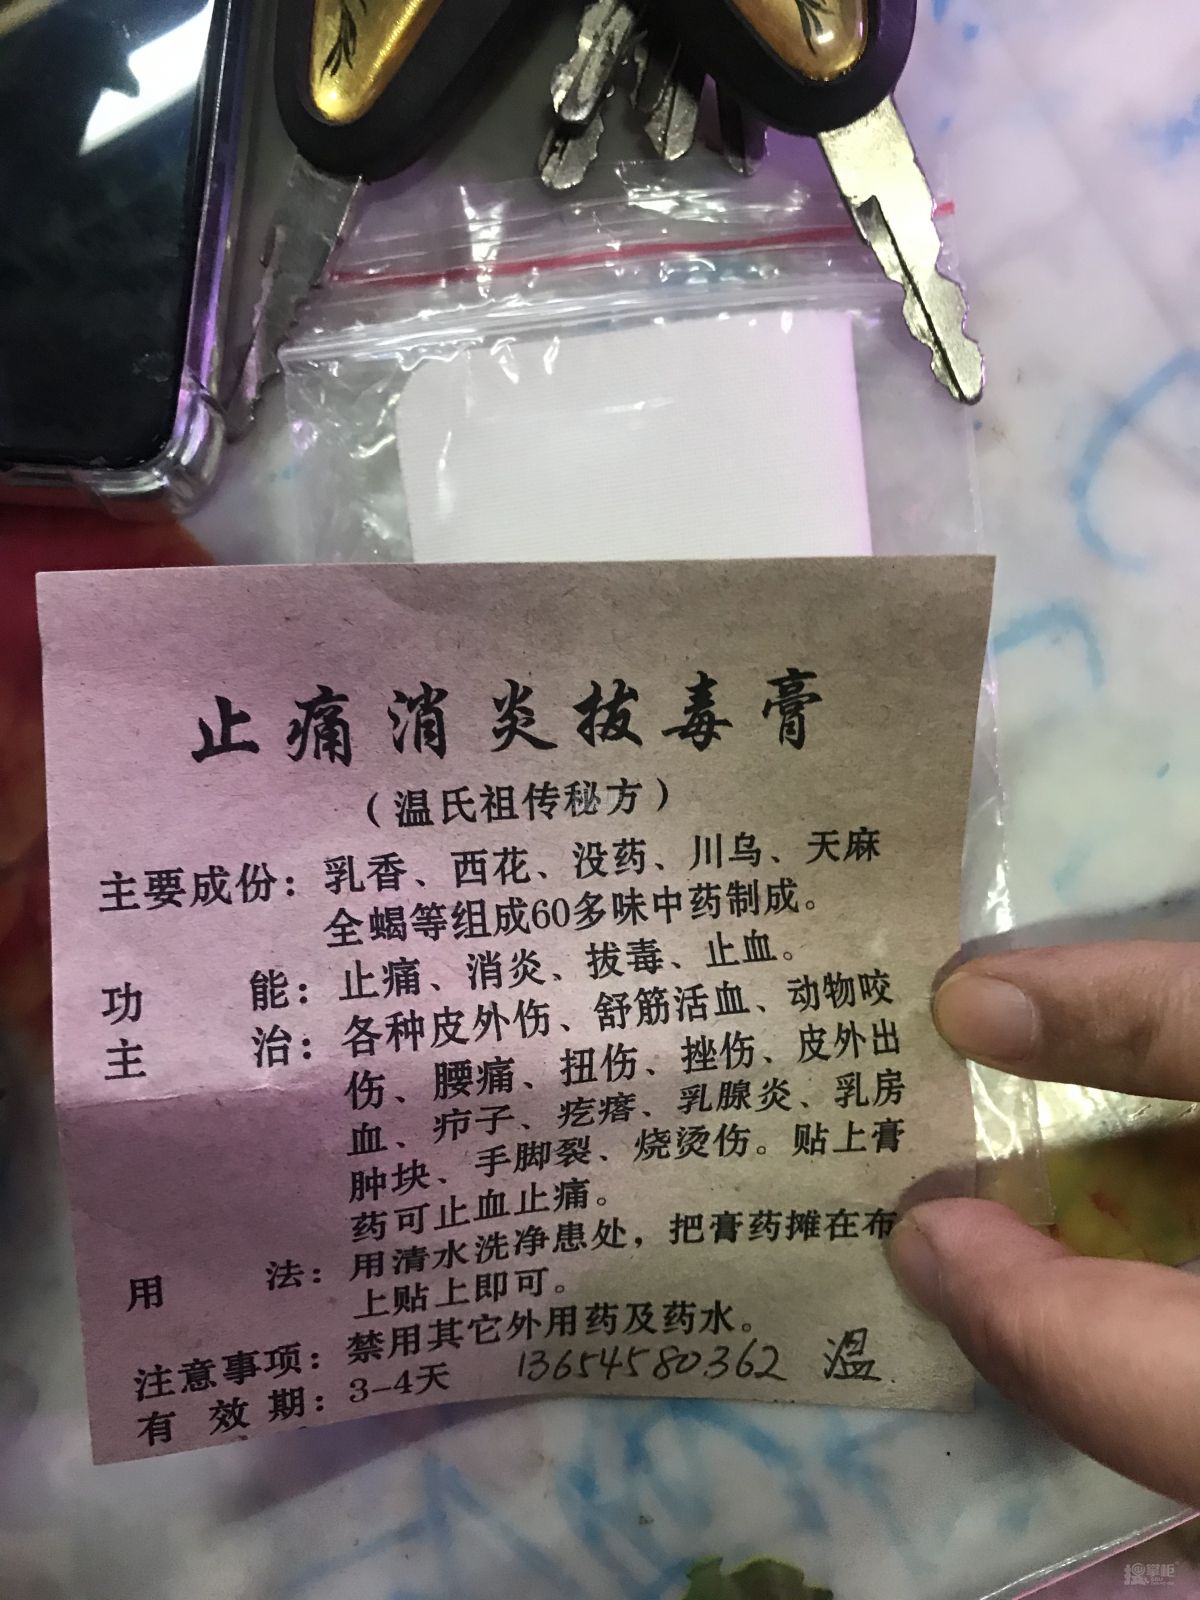 止痛消炎拔毒膏
（温氏祖传秘方）
主要成份：乳香、西花、没药、川乌、天麻
全蝎等组成60多味中药制成。
功能：止痛、消炎、拔毒、止血。
主治：各种皮外伤、舒筋活血、动物咬
伤、腰痛、扭伤、挫伤、皮外出
血、疖子、疙瘩、乳腺炎、乳房
肿块、手脚裂、烧烫伤。贴上膏
药可止血止痛。
用法：用清水洗净患处，把膏药摊在布
上贴上即可。
注意事项：禁用其它外用药及药水。
有效期：3-4天 13654580362 温
搜掌柜